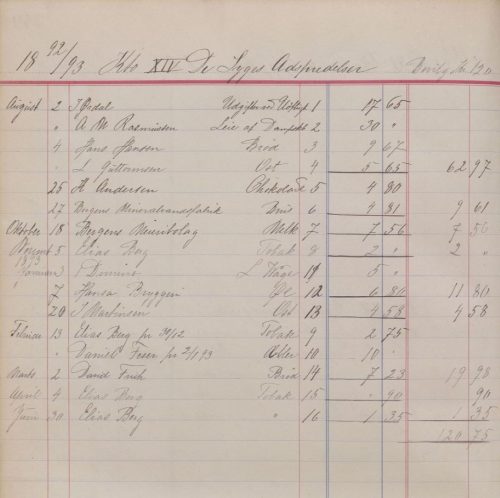 18 92/93 Kto XIV De Syges Adspredelser
August 2 J Ørdal Udgifter ved Udflugt 1 17 65
" A M Rasmussen Leie af Dampsk 2 30 "
4 Hans Hansen Brød 3 9 67
" L Guttormsen Ost 4 5 65 62 97
25 H Andersen Chokolade 5 4 80
27 Bergens Mineralvandsfabrik Brus 6 4 81 9 61
Oktober 18 Bergens Meieribolag Melk 7 7 56 7 56
Novembr 5 Elias Berg Tobak 8 2 " 2 "
1893
Januar 1 11 5 "
7 Hansa Bryggeri Øl 12 6 80 11 80
20 J Martinsen Ost 13 4 58 4 58
Februar 13 Elias Berg pr 31/12 Tobak 9 2 75
" Daniel pr 2/1 93 Æbler 10 10 "
Marts 2 David Brød 14 7 23 19 98
April 4 Elias Berg Tobak 15 " 90 90
Juni 30 Elias Berg " 16 1 35 1 35
120 75